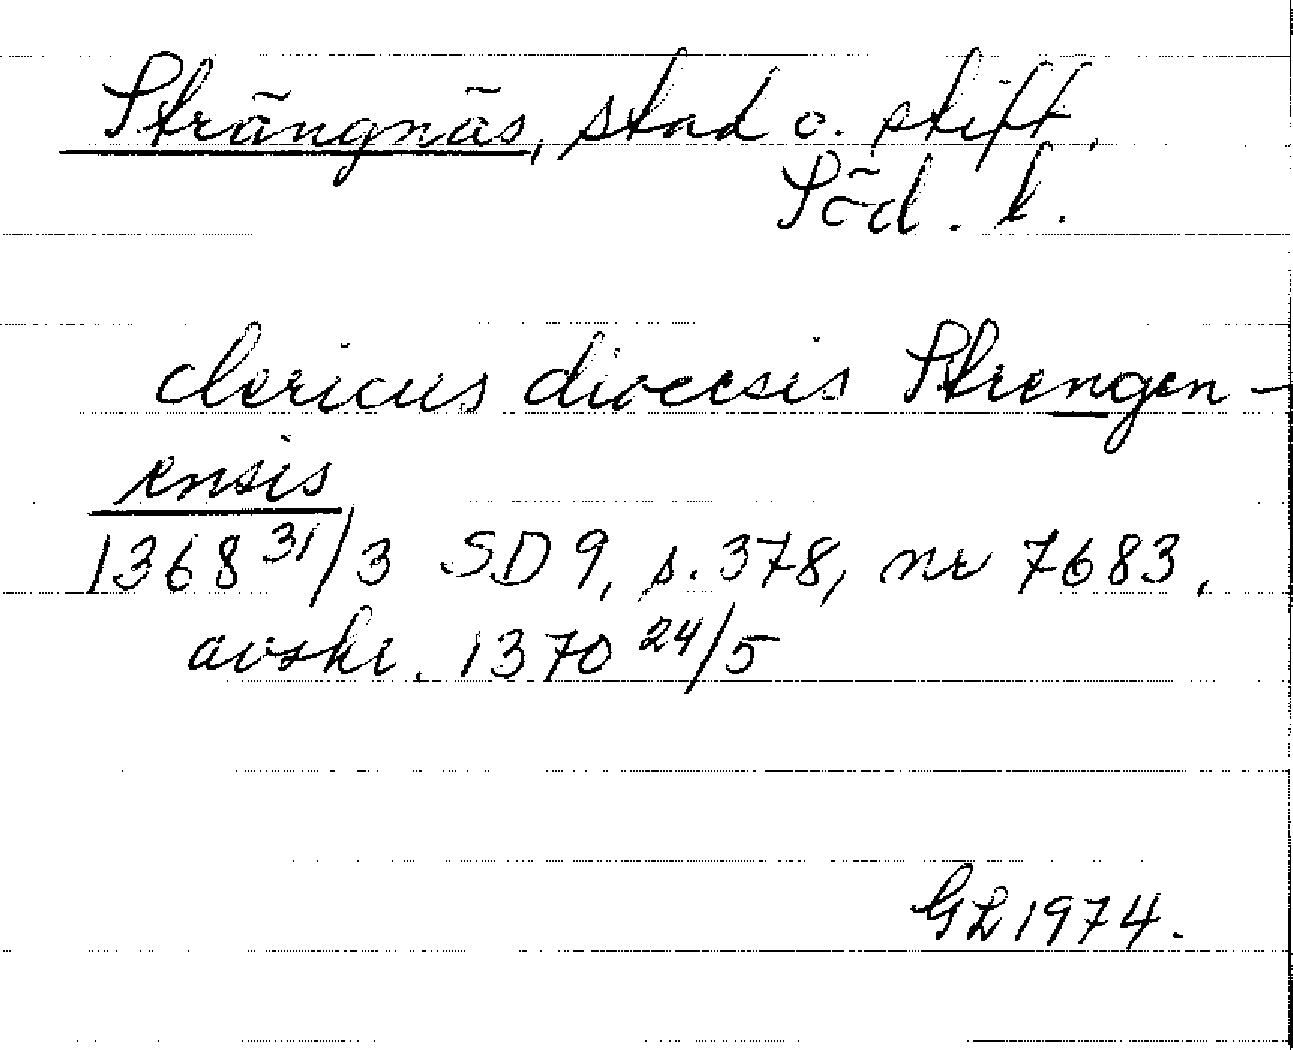 Strängnäs, stad o. stift,
Söd. l.
clericus diocesis Strengen-
ensis
1368 31/3 SD 9, s. 378, nr 7683,
avskr. 1370 24/5
GL 1974.